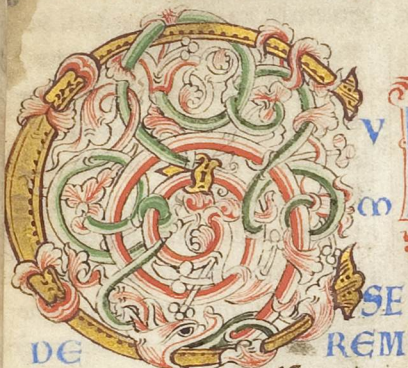 CV
M
SE
DE REM